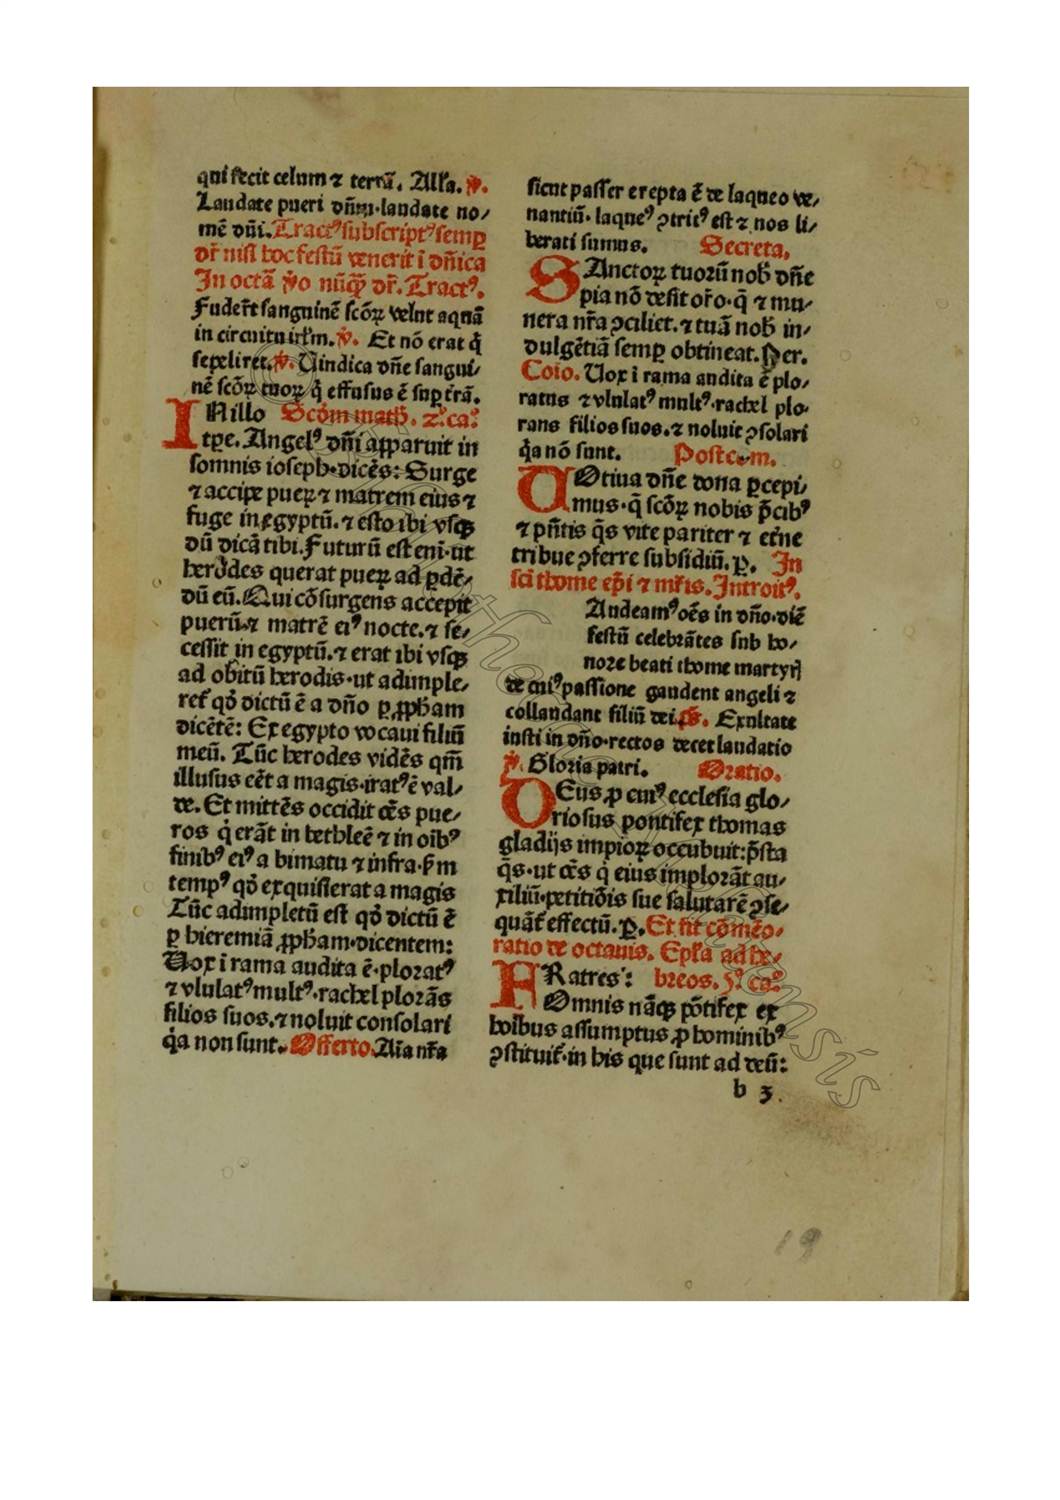 qui fecit celum ⁊ terrā. Alľa. ꝟ.
Laudate pueri dñm·laudate no⸗
mē dñi. Tractꝰ subscriptꝰ semꝑ
dr̄ nisi hoc festū venerit ī dñica
In octā ꝟo nūꝙ̄ dr̄. Tractꝰ.
Fuderūt sanguinē scōꝝ velut aquā
in circuitu irľm. ꝟ. Et nō erat q̇
sepeliret. ꝟ. Uindica dñe sangui⸗
nē scōꝝ tuoꝝ q̇ effusus ē suꝑ tr̄ā.
IN illo Scḋm math̄. 2ͦ. caͦ.
tꝑe. Angelꝰ dñi apparuit in
somnis ioseph·dicēs: Surge
⁊ accipe pueꝝ ⁊ matrem eius ⁊
fuge in egyptū. ⁊ esto ibi vsqꝫ
dū dicā tibi. Futurū est eni̇·ut
herodes querat pueꝝ ad ꝑdē⸗
dū eū. Qui cōsurgens accepit
puerū·⁊ matrē eiꝰ nocte. ⁊ se⸗
cessit in egyptū. ⁊ erat ibi vsqꝫ
ad obitū herodis·ut adimple⸗
ret̄ qḋ dictū ē a dño ꝑ ꝓph̄am
dicētē: Ex egypto vocaui filiū
meū. Tūc herodes vidēs qm̄
illusus eēt a magis·iratꝰ ē val⸗
de. Et mittēs occidit oēs pue⸗
ros q̇ erāt in bethleē ⁊ in oībꝰ
finibꝰ eiꝰ a bimatu ⁊ infra·ẜm
tempꝰ qḋ exquisierat a magis
Tūc adimpletū est qḋ dictū ē
ꝑ hieremiā ꝓph̄am·dicentem:
Uox ī rama audita ē·ploratꝰ
⁊ vlulatꝰ multꝰ·rachel plorās
filios suos. ⁊ noluit consolari
q̇a non sunt. Offerto. Aīa nr̄a
sicut passer erepta ē de laqueo ve⸗
nantiū· laqueꝰ ꝯtritꝰ est ⁊ nos li⸗
berati sumus. Secreta.
SAnctoꝝ tuorū nob̄ dñe
pia nō desit or̄o·q̄ ⁊ mu⸗
nera nr̄a ꝯciliet. ⁊ tuā nob̄ in⸗
dulgētiā semꝑ obtineat. Per.
Cōio. Uox ī rama audita ē plo⸗
ratus ⁊ vlulatꝰ multꝰ·rachel plo⸗
rans filios suos. ⁊ noluit ꝯsolari
q̇a nō sunt. Postcom.
UOtiua dñe dona ꝑcepi⸗
mus·q̄ scōꝝ nobis p̄cibꝰ
⁊ pn̄tis q̄s vite pariter ⁊ et̄ne
tribue ꝯferre subsidiū. ꝑ. In
scī thome ep̄i ⁊ mr̄is. Introitꝰ.
Audeamꝰ oēs in dño·diē
festū celebrātes sub ho⸗
nore beati thome martyrꝭ
de cuiꝰ passione gaudent angeli ⁊
collaudant filiū dei. p̄s. Exultate
iusti in dño·rectos decet laudatio
ꝟ. Gloria patri. Oratio.
DEus ꝓ cuiꝰ ecclesia glo⸗
riosus pontifex thomas
gladijs impioꝝ occubuit: p̄sta
q̄s·ut oēs q̇ eius implorāt au⸗
xiliū·petitiōis sue salutarē ꝯse⸗
quāt̄ effectū. ꝑ. Et fit cōmēo⸗
ratio de octauis. Epľa ad he⸗
FRatres: breos. 5ͦ. caͦ.
Omnis nāqꝫ pōtifex ex
hoībus assumptus ꝓ hominibꝰ
ꝯstituit̄·in his que sunt ad deū:
b 3.
19